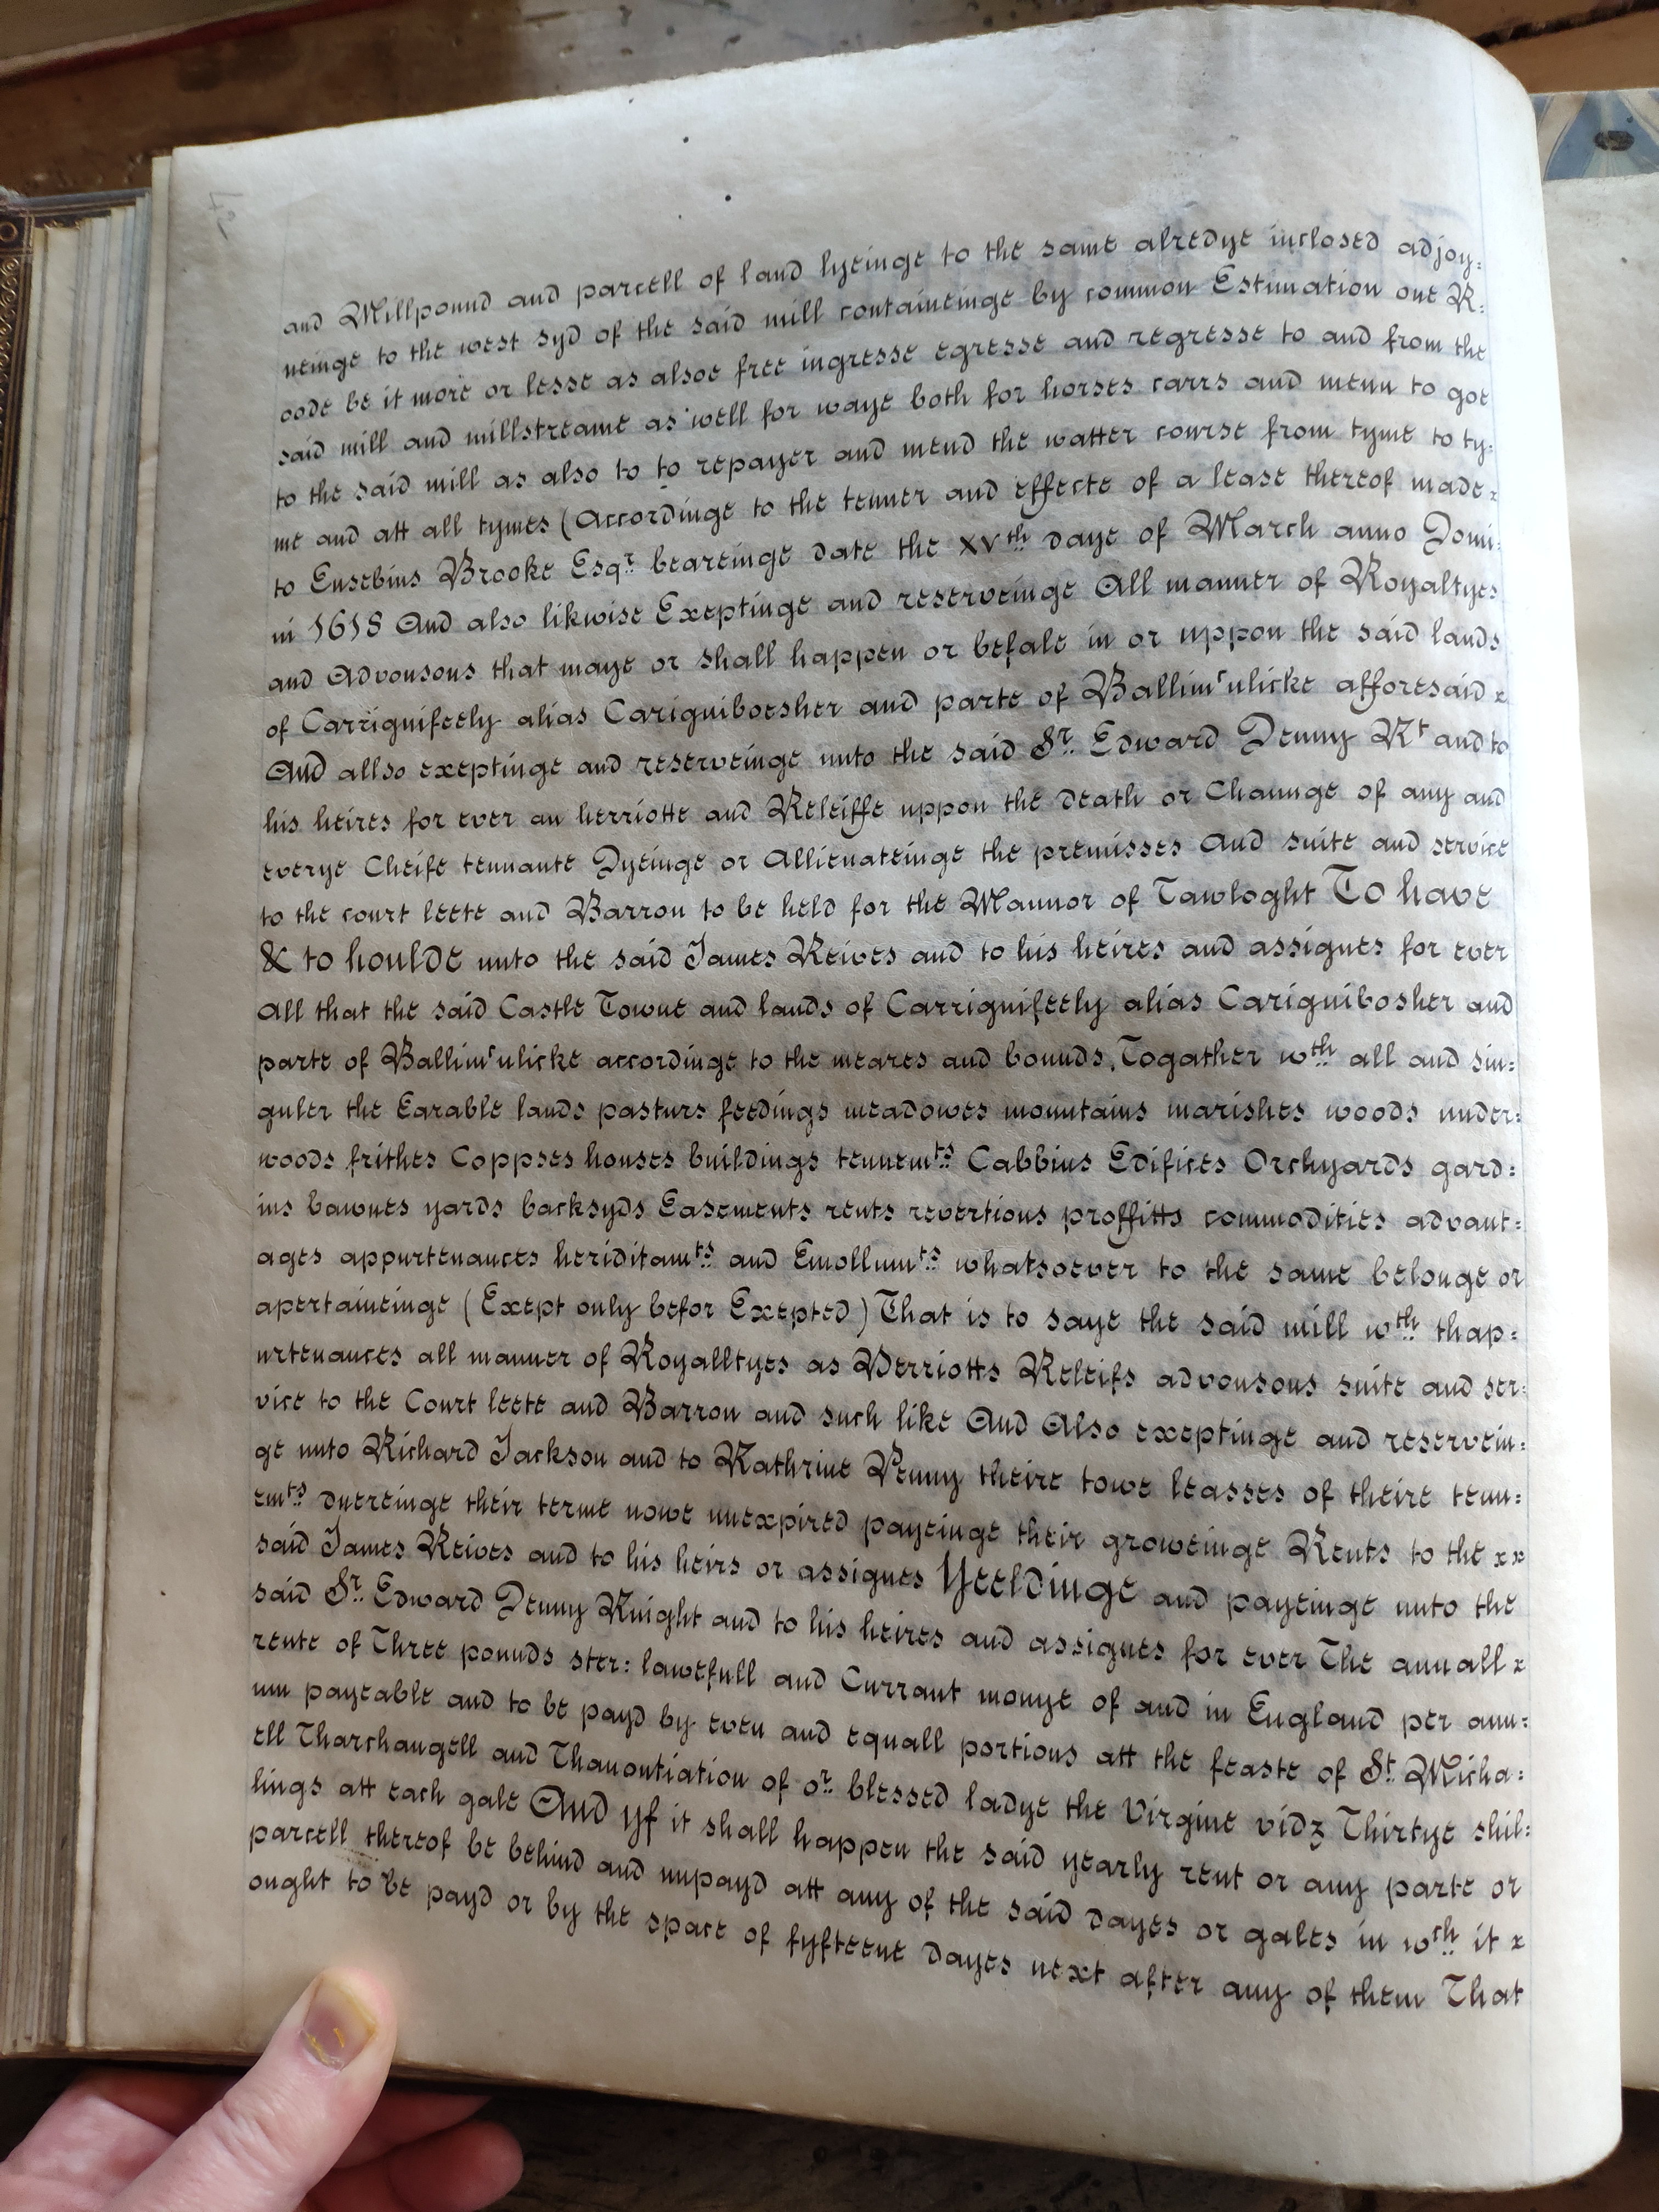 and Millpound and parcell of land lyeinge to the same alredye inclosed adjoy:
neinge to the west syd of the said mill containeinge by common Estimation one R:
oode be it more or lesse as alsoe free ingresse egresse and regresse to and from the
said mill and millstreame as well for waye both for horses carrs and menn to goe
to the said mill as also to to repayer and mend the watter course from tyme to ty:
me and att all tymes (Accordinge to the tenner and effecte of a lease thereof made x
to Eusebius Brooke Esqr bearinge date the XVth daye of March anno Domi:
ni 1618 And also likwise Exeptinge and reserveinge All manner of Royaltyes
and Advousons that maye or shall happen or befale in or uppon the said lands
of Carrignifeely alias Carigniboesher and parte of Ballimculicke afforesaid x
And allso exeptinge and reserveinge unto the said Sr. Edward Denny Kt and to
his heires for ever an herriotte and Releiffe uppon the death or Chaunge of any and
everye Cheife tennante Dyeinge or Allienateinge the premisses And suite and service
to the court leete and Barron to be held for the Mannor of Tawloght To have
& to houlde unto the said James Reives and to his heires and assignes for ever
All that the said Castle Towne and lands of Carrignifeely alias Carignibosher and
parte of Ballimculicke accordinge to the meares and bounds, Togather wth all and sin:
guler the Earable lands pasturs feedings meadowes mountains marishes woods under:
woods frithes Coppses houses buildings tennemts Cabbins Edifices Orchyards gard:
ins bawnes yards backsyds Easements rents revertions proffitts commodities advant:
ages appurtenances heriditamts and Emollumts whatsoever to the same belonge or
apertaineinge (Exept only befor Exepted) That is to saye the said mill wth thap:
urtenances all manner of Royalltyes as Herriotts Releifs advousons suite and ser:
vice to the Court leete and Barron and such like And Also exeptinge and reservein:
ge unto Richard Jackson and to Kathrine Penny theire towe leasses of theire tenn:
emts duereinge their terme nowe unexpired payeinge their groweinge Rents to the xx
said James Reives and to his heirs or assignes Yeeldinge and payeinge unto the
said Sr. Edward Denny Knight and to his heires and assignes for ever The annuall x
rente of Three pounds ster: lawefull and Currant monye of and in England per ann:
um payeable and to be payd by even and equall portions att the feaste of St. Micha:
ell Tharchangell and Thanontiation of or blessed ladye the Virgine vidz Thirtye shil:
lings att each gale And yf it shall happen the said yearly rent or any parte or
parcell thereof be behind and unpayd att any of the said dayes or gales in wch it x
ought to be payd or by the space of fyfteene dayes next after any of them That